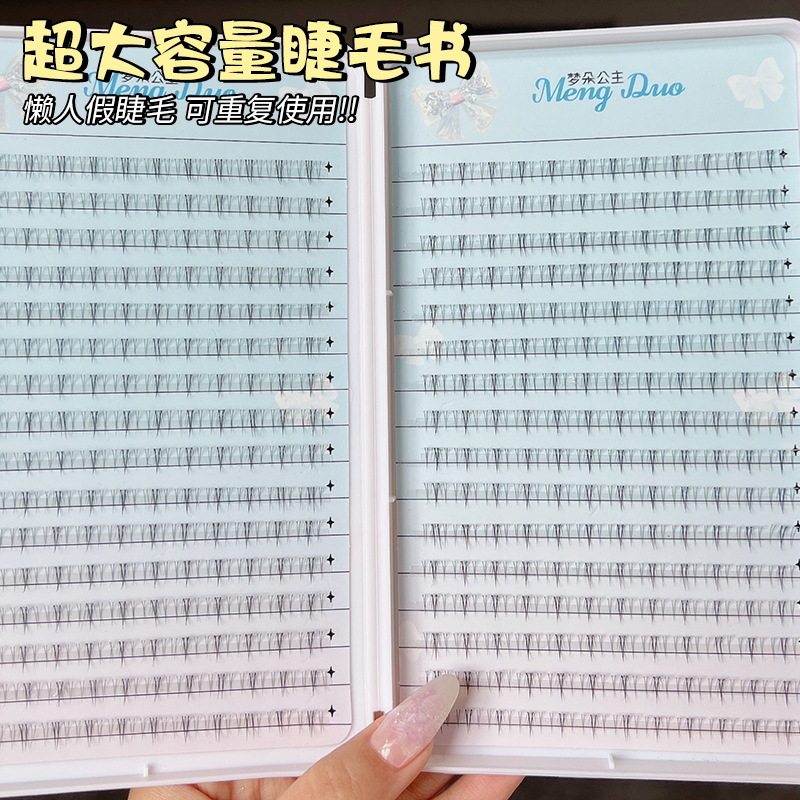 超大容量睫毛书
懒人假睫毛 可重复使用!!
梦朵公主
Meng Duo
梦朵公主
Meng Duo